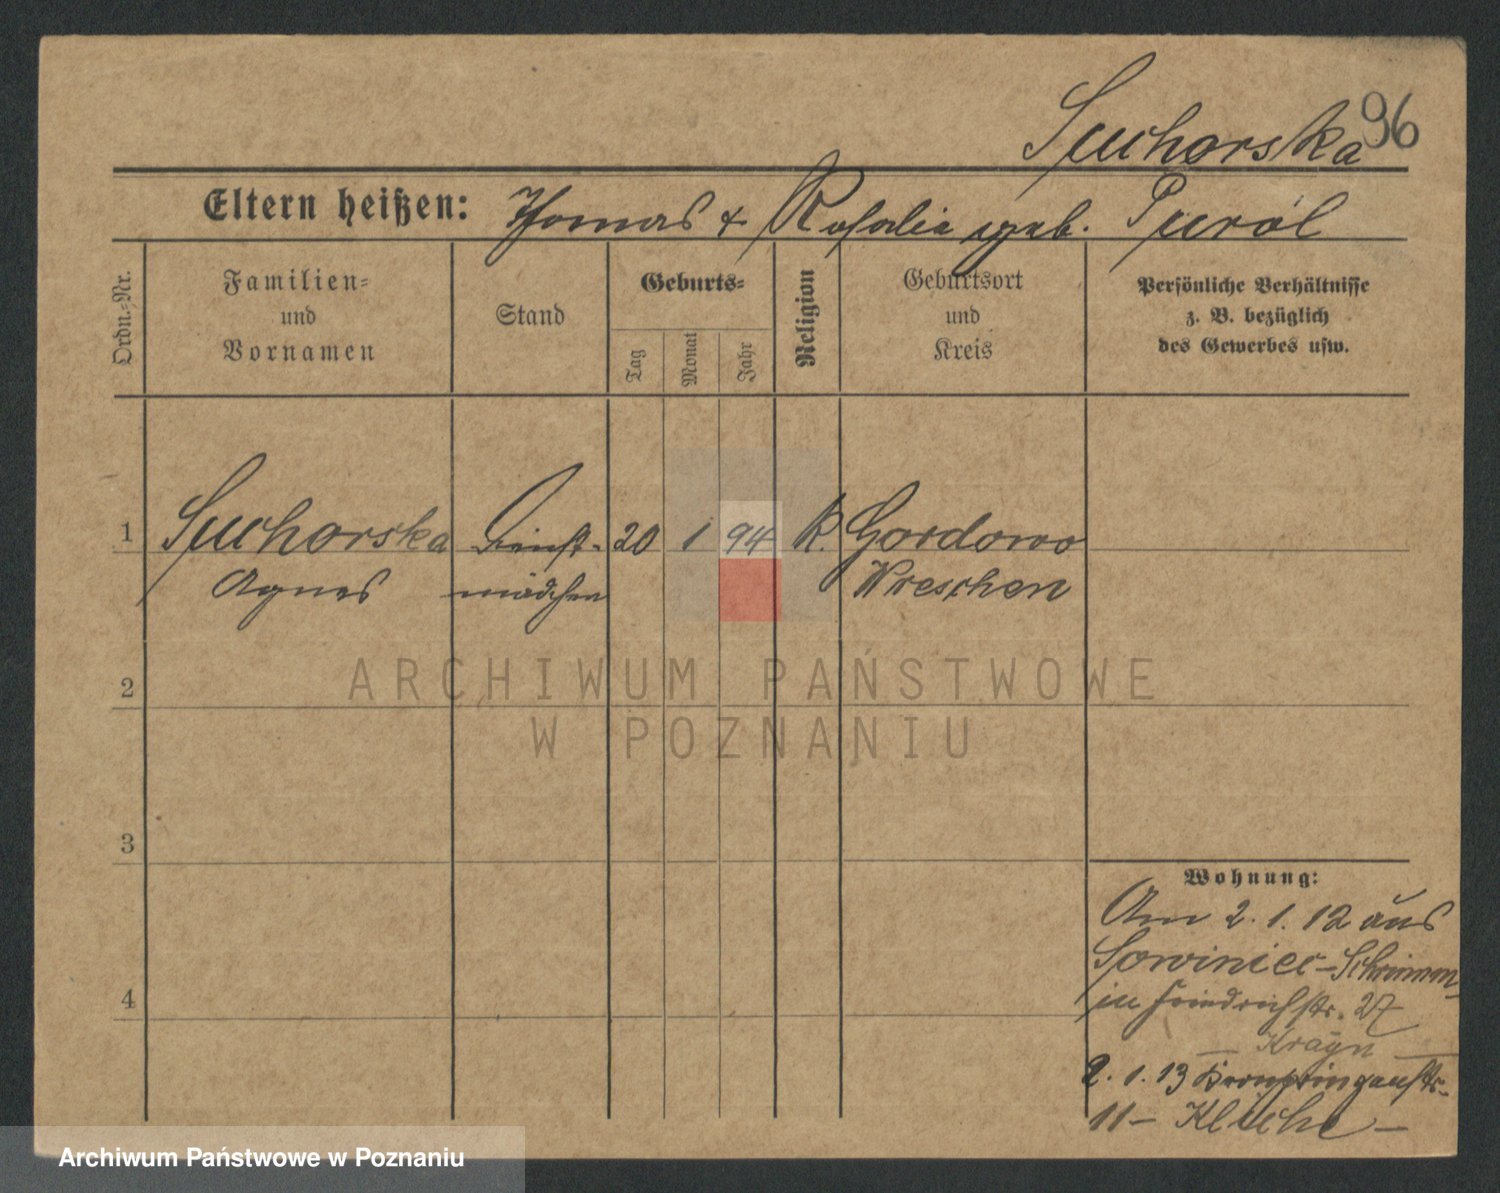 Suchorska
96
Eltern heißen: Thomas & Rosalie geb. Purol
Ordn.-Nr.
Familien-
und
Vornamen
Stand
Geburts-
Tag
Monat
Jahr
Religion
Geburtsort
und
Kreis
Persönliche Verhältnisse
z. B. bezüglich
des Gewerbes usw.
1 Suchorska Dienst- 20 1 94 K. Gordowo
Agnes mädchen Wreschen
2
3
4
Wohnung:
Am 2.1.12 aus
Sowiniec-Schrimm
in Friedrichstr. 27
— Krayn —
2.1.13 Kronprinzenstr.
11 - Klische -
ARCHIWUM PAŃSTWOWE
W POZNANIU
Archiwum Państwowe w Poznaniu